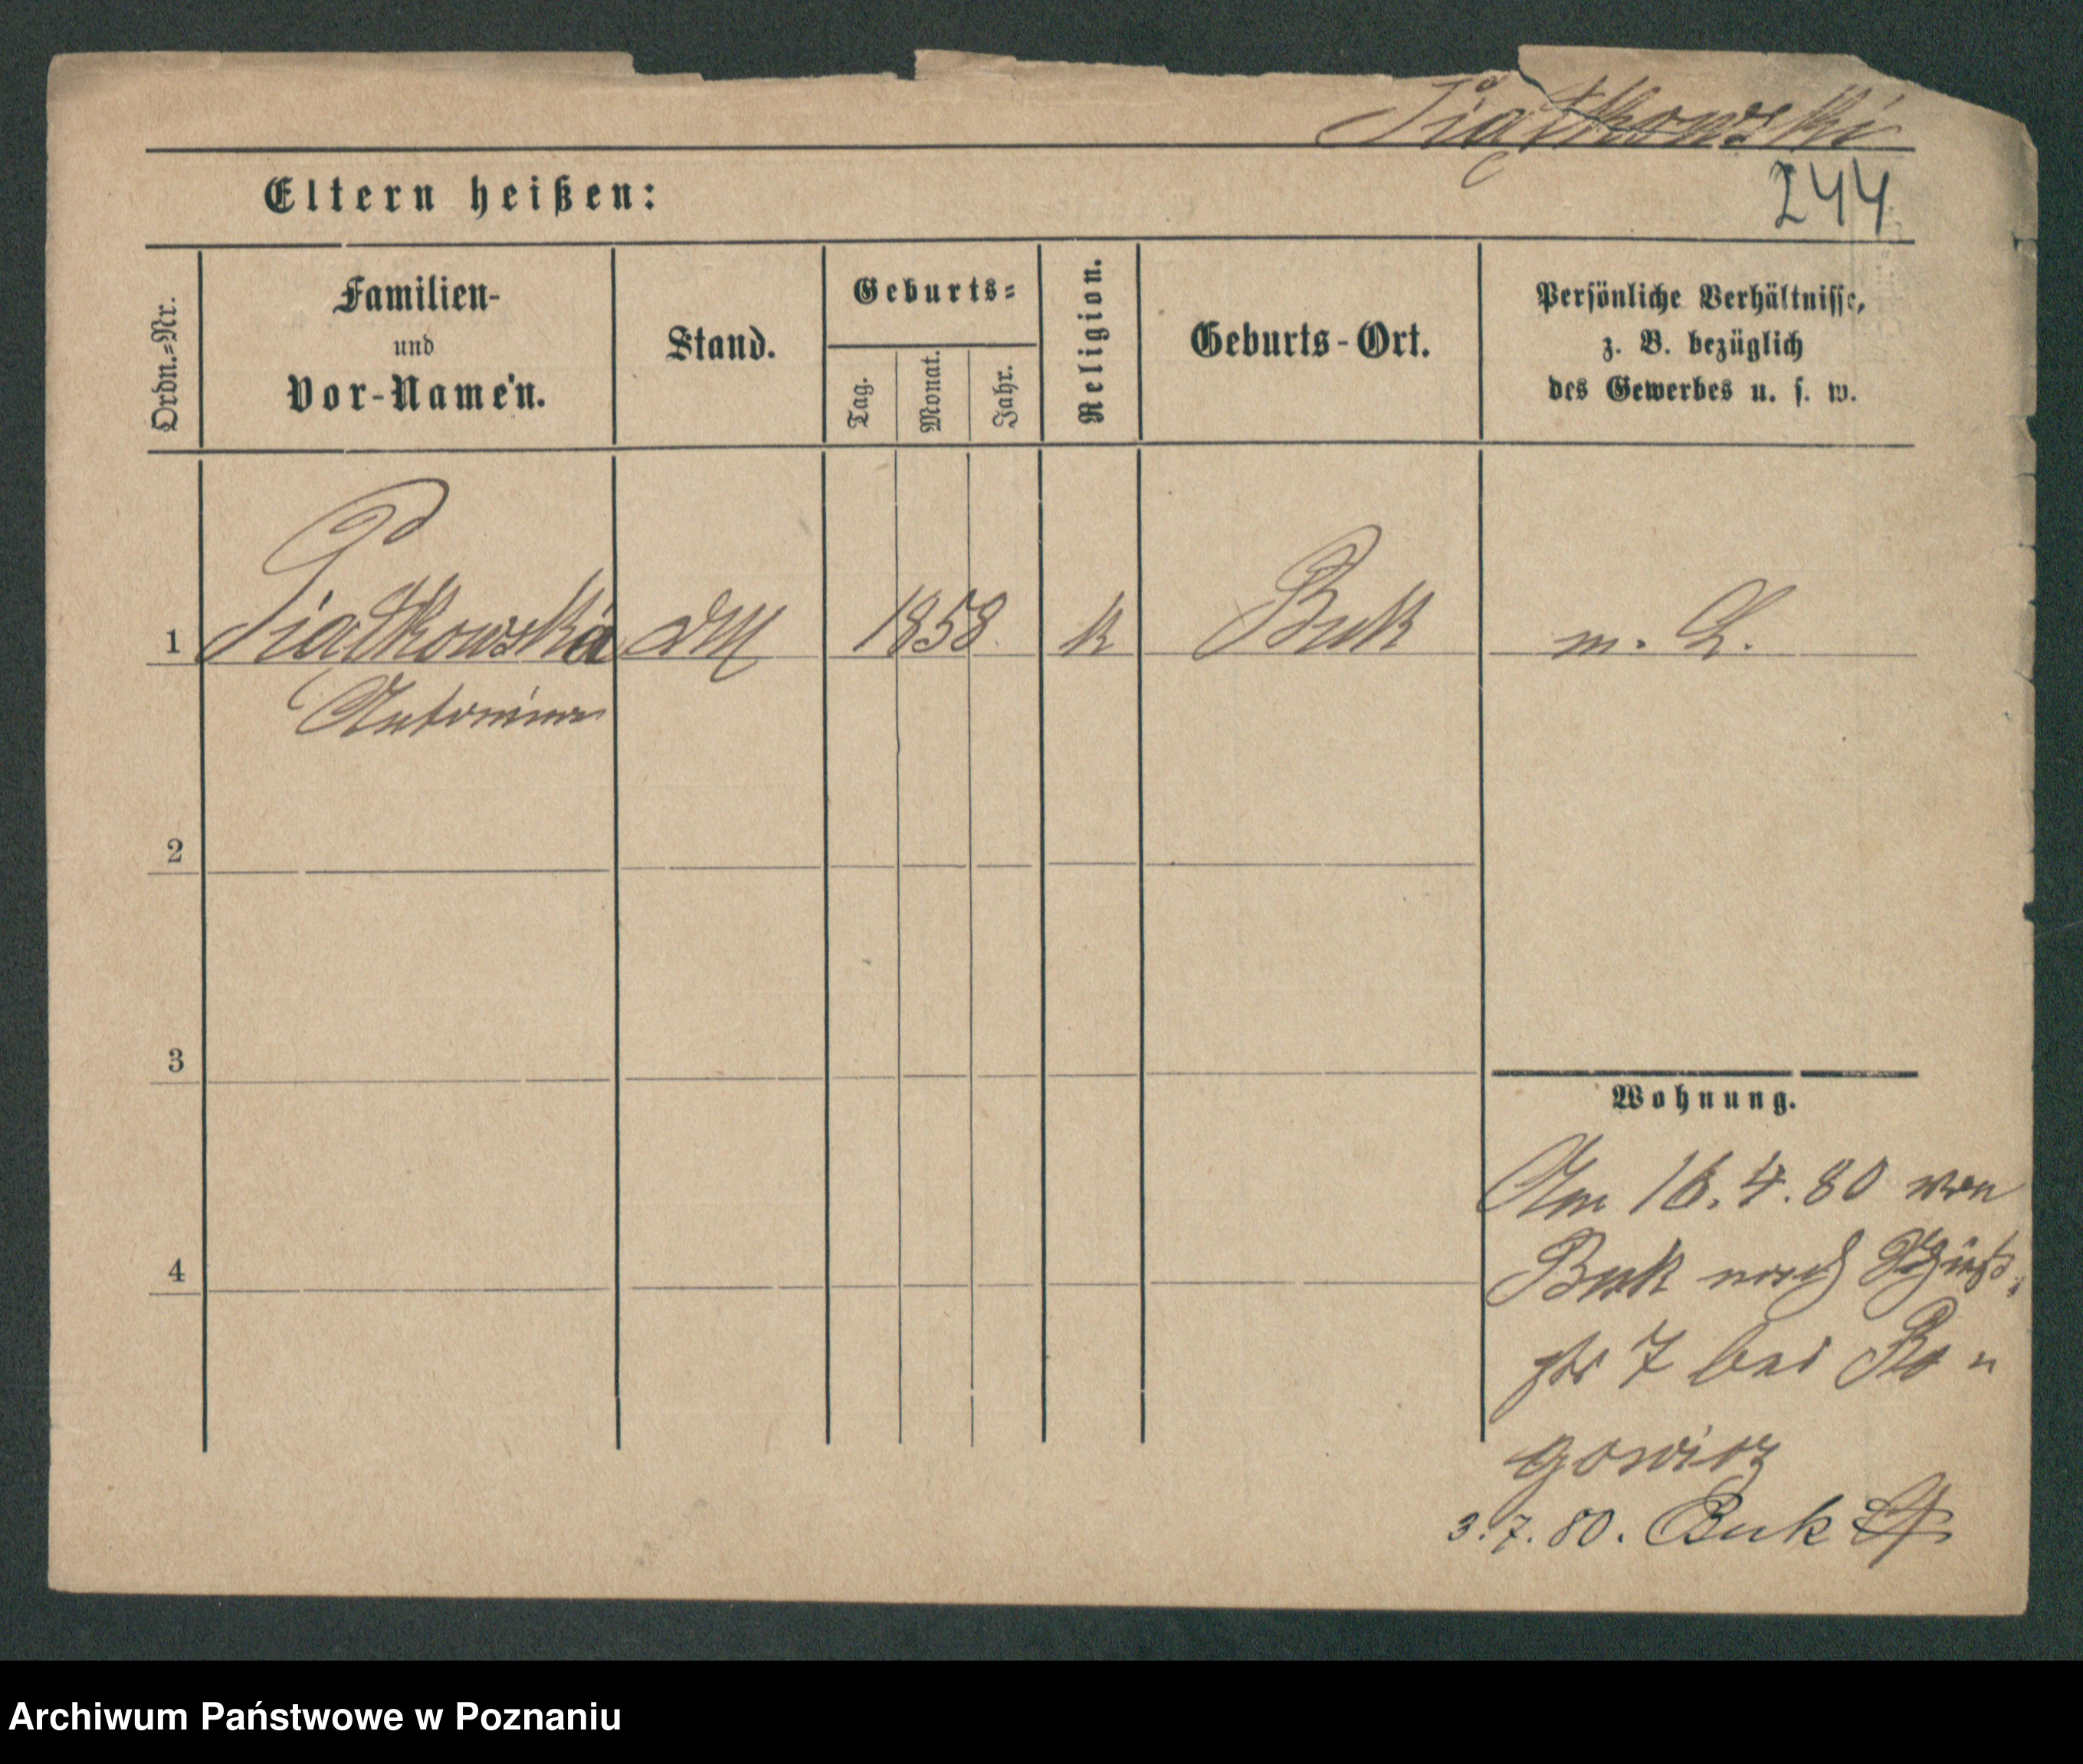 Piątkowski
244
Eltern heißen:
Ordn.=Nr.
Familien-
und
Vor-Namen.
Stand.
Geburts=
Tag.
Monat.
Jahr.
Religion.
Geburts-Ort.
Persönliche Verhältnisse,
z. B. bezüglich
des Gewerbes u. s. w.
1 Piatkowska DM 1858 k Buk m. L.
Antonina
2
3
Wohnung.
Am 16.4.80 von
4
Buk nach
7 bei Ro=
gowicz
3.7.80. Buk
Archiwum Państwowe w Poznaniu